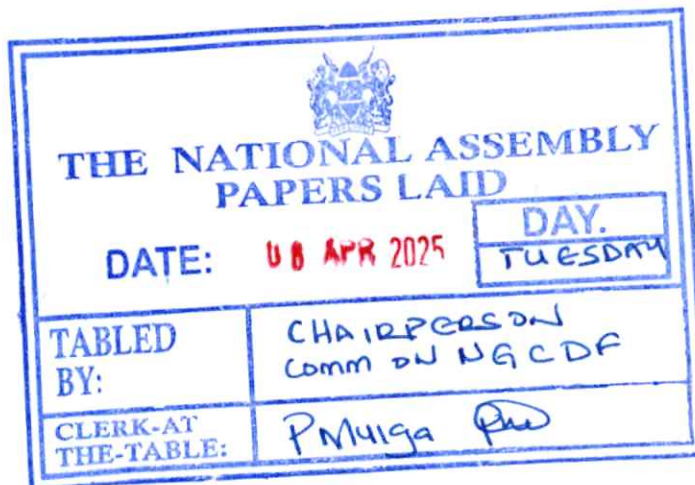 THE NATIONAL ASSEMBLY
PAPERS LAID
DATE: 08 APR 2025
DAY.
TUESDAY
TABLED BY:
CHAIRPERSON
COMM ON NGCDF
CLERK-AT
THE-TABLE: